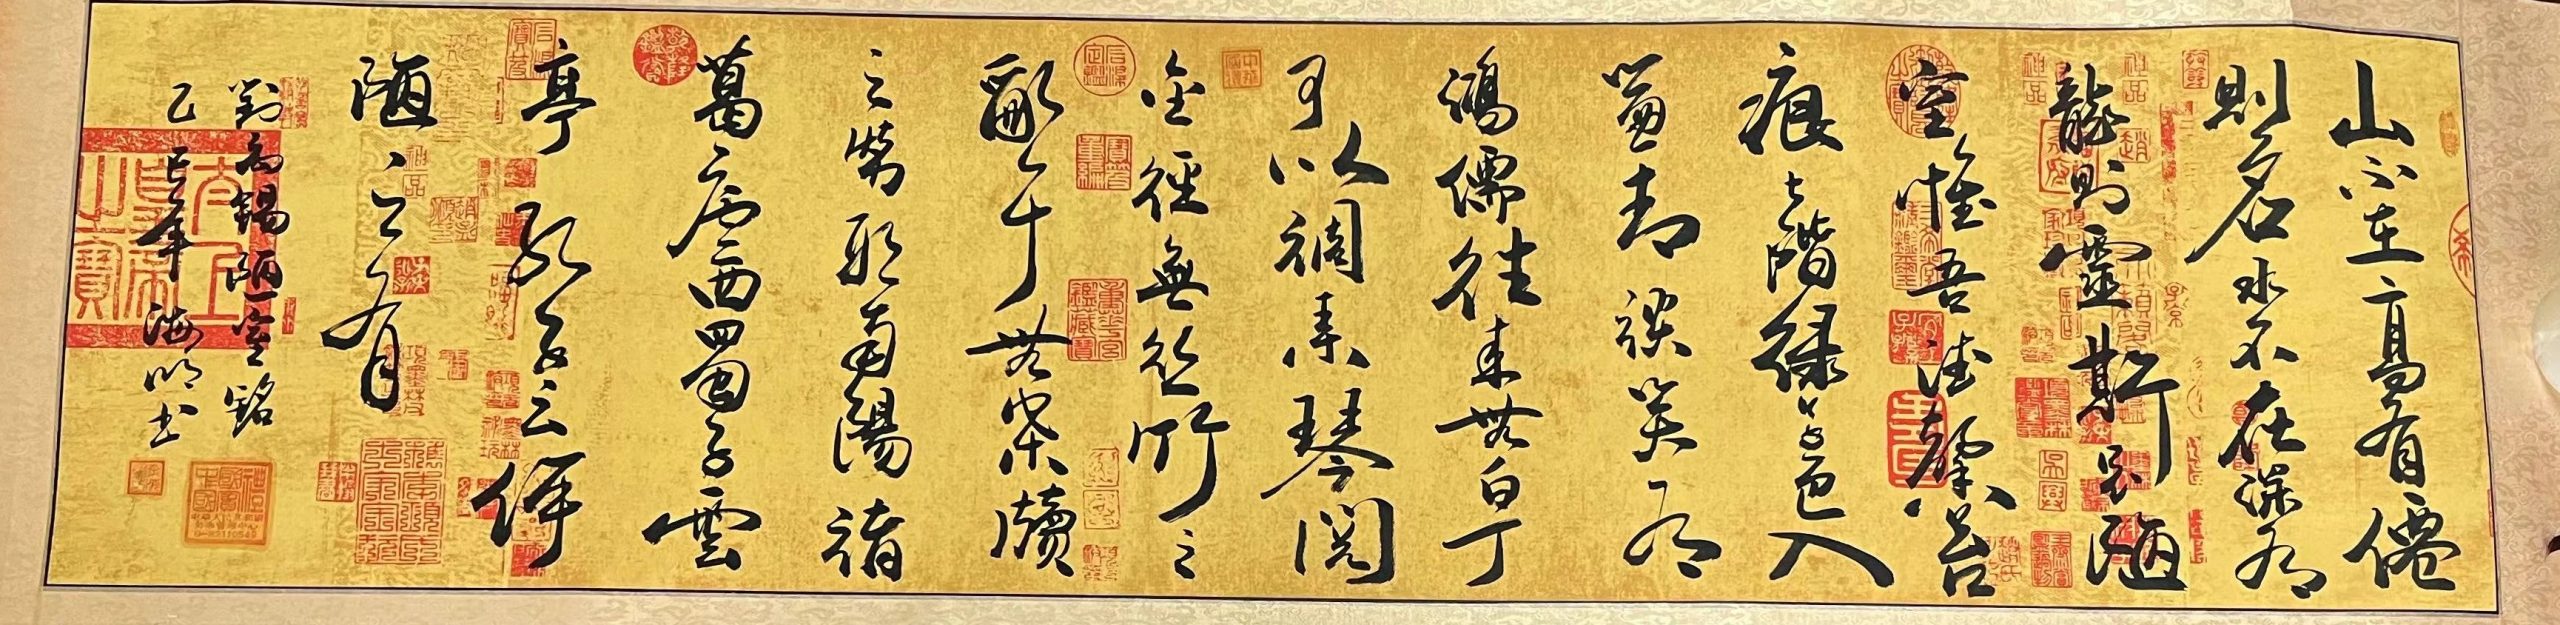 山不在高有僊
則名水不在深有
龍則靈斯是陋
室惟吾德馨苔
痕上階綠草色入
簾青談笑有
鴻儒往來無白丁
可以調素琴閱
金經無絲竹之
亂耳無案牘
之勞形南陽諸
葛廬西蜀子雲
亭孔子云何
陋之有
劉禹錫陋室銘
乙巳年海明书
太上皇帝之寶